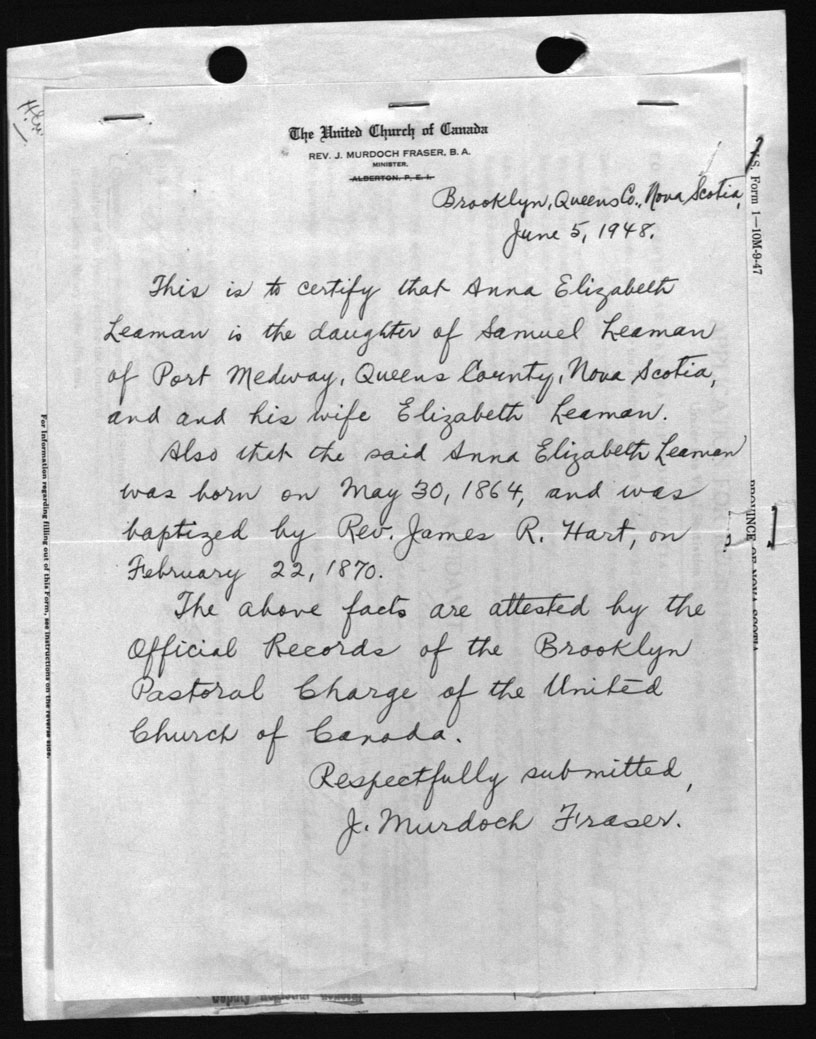 The United Church of Canada
REV. J. MURDOCH FRASER, B. A.
MINISTER.
ALBERTON, P. E. I.
Brooklyn, Queens Co., Nova Scotia,
June 5, 1948.
This is to certify that Anna Elizabeth
Leaman is the daughter of Samuel Leaman
of Port Medway, Queens County, Nova Scotia,
and and his wife Elizabeth Leaman.
Also that the said Anna Elizabeth Leaman
was born on May 30, 1864, and was
baptized by Rev. James R. Hart, on
February 22, 1870.
The above facts are attested by the
Official Records of the Brooklyn
Pastoral Charge of the United
Church of Canada.
Respectfully submitted,
J. Murdoch Fraser.
V.S. Form 1—10M-9-47
PROVINCE OF NOVA SCOTIA
For information regarding filling out of this Form, see instructions on the reverse side.
Deputy Registrar General